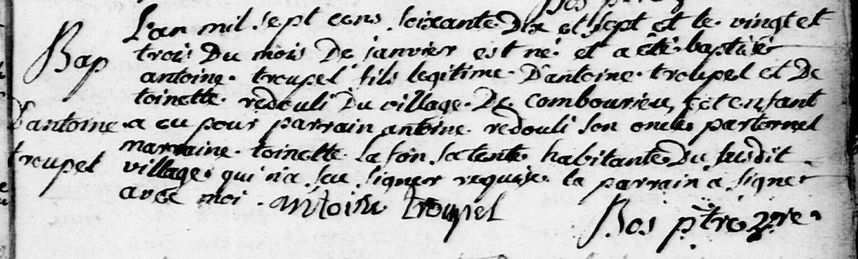 L'an mil sept cens soixante Dix et sept et le vingt et
Bap
trois Du mois De janvier est né et a été baptisér
antoine troupel fils legitime D'antoine troupel et De
toinette redouli Du village De Combourieu, Cet enfant
D'antoine
a eu pour parrain antoine redouli son oncle parternel
troupel
marraine toinette lafon sa tente habitante Du susdit
village qui n'a sçu signer requise le parrain a signer
avec moi. antoine troupel
Bos ptre